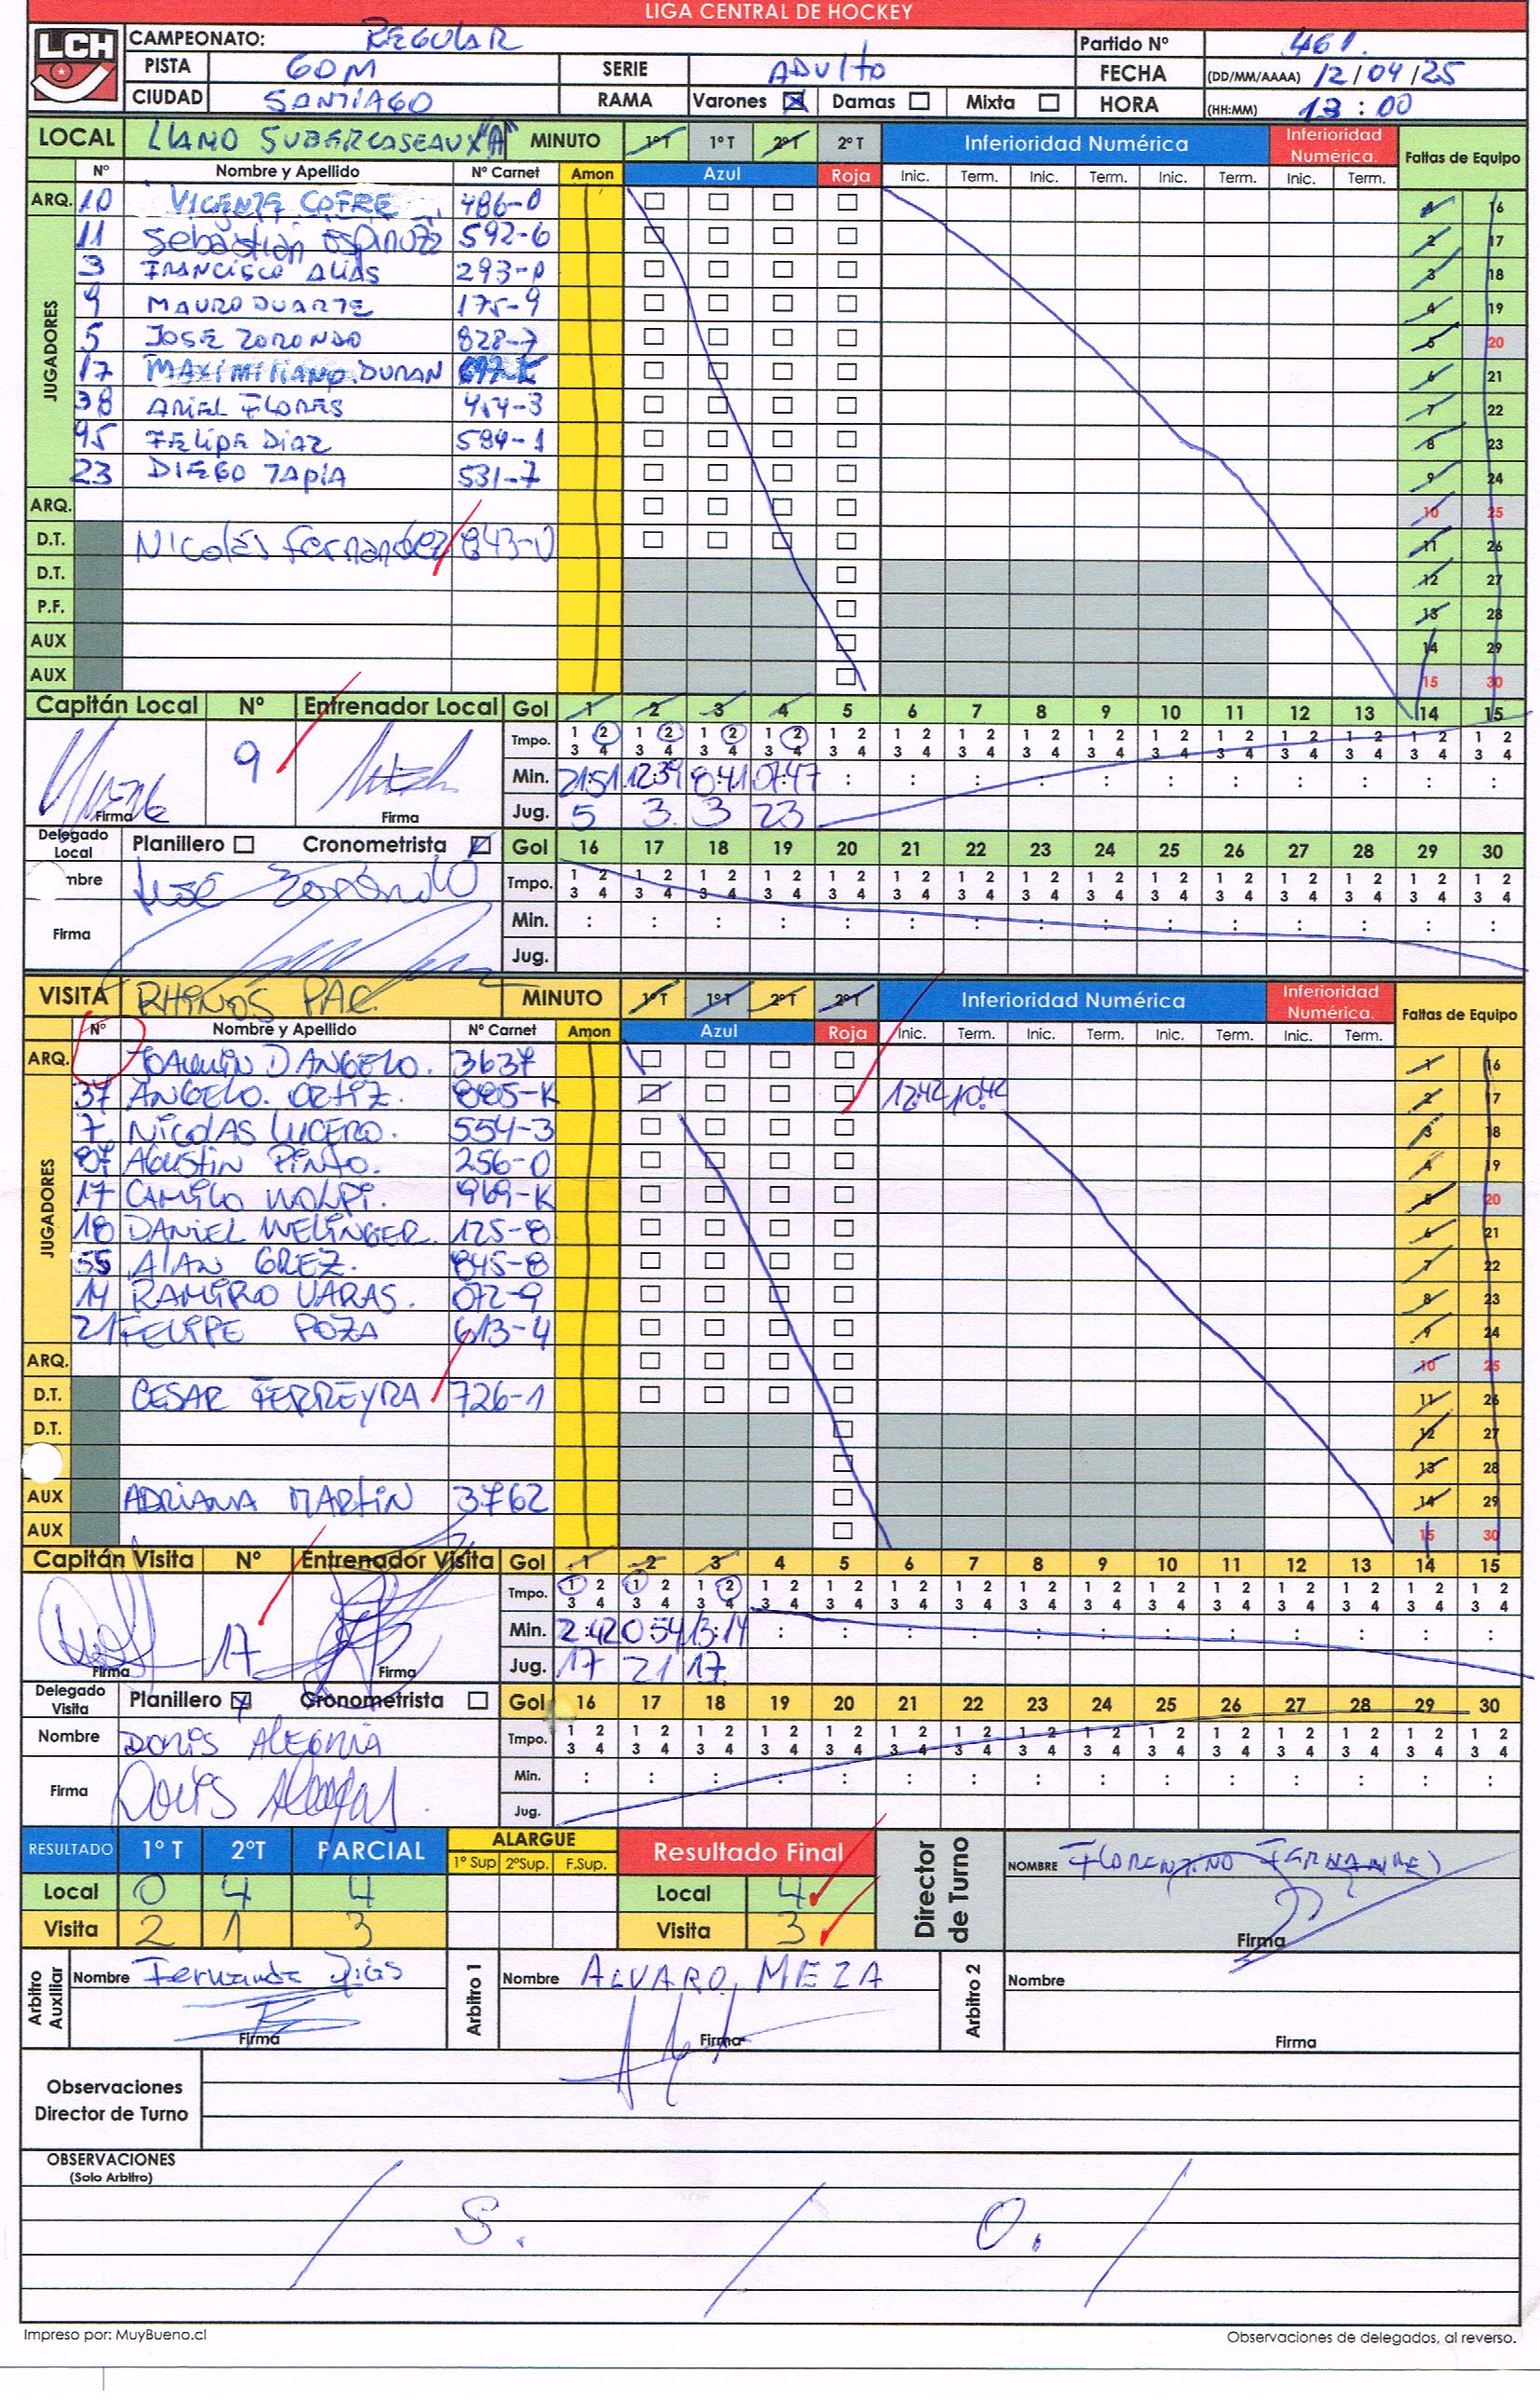 LIGA CENTRAL DE HOCKEY
LCH
CAMPEONATO: REGULAR Partido Nº 461.
PISTA GDM SERIE ADULTO FECHA (DD/MM/AAAA) 12/04/25
CIUDAD SANTIAGO RAMA Varones Damas Mixta HORA (HH:MM) 13:00
LOCAL LLANO SUBERCASEAUX "A" MINUTO 1ºT 1ºT 2ºT 2ºT Inferioridad Numérica Inferioridad Numérica. Faltas de Equipo
Nº Nombre y Apellido Nº Carnet Amon Azul Roja Inic. Term. Inic. Term. Inic. Term. Inic. Term.
ARQ. 10 VICENTE COFRE 486-0 1 16
JUGADORES
11 Sebastián Espinoza 592-6 2 17
3 FRANCISCO ALIAS 293-0 3 18
9 MAURO DUARTE 175-9 4 19
5 JOSE ZORONDO 828-7 5 20
17 MAXIMILIANO. DURAN 6 21
38 ARIEL FLORES 414-3 7 22
95 FELIPE DIAZ 584-1 8 23
23 DIEGO TAPIA 531-7 9 24
ARQ. 10 25
D.T. Nicolás Fernández 843-0 11 26
D.T. 12 27
P.F. 13 28
AUX 14 29
AUX 15 30
Capitán Local Nº Entrenador Local Gol 1 2 3 4 5 6 7 8 9 10 11 12 13 14 15
9
Tmpo. 1 2 3 4 1 2 3 4 1 2 3 4 1 2 3 4 1 2 3 4 1 2 3 4 1 2 3 4 1 2 3 4 1 2 3 4 1 2 3 4 1 2 3 4 1 2 3 4 1 2 3 4 1 2 3 4 1 2 3 4
Min. 21:51 12:39 8:41 07:47 : : : : : : : : : : :
Firma Firma Jug. 5 3 3 23
Delegado Local Planillero Cronometrista Gol 16 17 18 19 20 21 22 23 24 25 26 27 28 29 30
mbre José Zorondo
Tmpo. 1 2 3 4 1 2 3 4 1 2 3 4 1 2 3 4 1 2 3 4 1 2 3 4 1 2 3 4 1 2 3 4 1 2 3 4 1 2 3 4 1 2 3 4 1 2 3 4 1 2 3 4 1 2 3 4 1 2 3 4
Firma Min. : : : : : : : : : : : : : : :
Jug.
VISITA RHINOS PAC. MINUTO 1ºT 1ºT 2ºT 2ºT Inferioridad Numérica Inferioridad Numérica. Faltas de Equipo
Nº Nombre y Apellido Nº Carnet Amon Azul Roja Inic. Term. Inic. Term. Inic. Term. Inic. Term.
ARQ. JOAQUIN D'ANGELO. 3637 1 16
JUGADORES
37 ANGELO. ORTIZ. 885-K 12:42 10:42 2 17
7 NICOLAS LUCERO. 554-3 3 18
87 AGUSTIN PINTO. 256-0 4 19
17 CAMILO WOLPI. 969-K 5 20
18 DANIEL WELINGER. 125-8 6 21
55 ALAN GREZ. 845-8 7 22
14 RAMIRO VARAS. 072-9 8 23
21 FELIPE POZA 613-4 9 24
ARQ. 10 25
D.T. CESAR FERREYRA 726-1 11 26
D.T. 12 27
13 28
AUX ADRIANA MARTIN 3762 14 29
AUX 15 30
Capitán Visita Nº Entrenador Visita Gol 1 2 3 4 5 6 7 8 9 10 11 12 13 14 15
17
Tmpo. 1 2 3 4 1 2 3 4 1 2 3 4 1 2 3 4 1 2 3 4 1 2 3 4 1 2 3 4 1 2 3 4 1 2 3 4 1 2 3 4 1 2 3 4 1 2 3 4 1 2 3 4 1 2 3 4 1 2 3 4
Min. 2:42 0:54 13:14 : : : : : : : : : : : :
Firma Firma Jug. 17 21 17
Delegado Visita Planillero Cronometrista Gol 16 17 18 19 20 21 22 23 24 25 26 27 28 29 30
Nombre DORIS ALEGRIA
Tmpo. 1 2 3 4 1 2 3 4 1 2 3 4 1 2 3 4 1 2 3 4 1 2 3 4 1 2 3 4 1 2 3 4 1 2 3 4 1 2 3 4 1 2 3 4 1 2 3 4 1 2 3 4 1 2 3 4 1 2 3 4
Firma Doris Min. : : : : : : : : : : : : : : :
Jug.
RESULTADO 1º T 2ºT PARCIAL ALARGUE 1º Sup 2ºSup. F.Sup. Resultado Final Director de Turno NOMBRE FLORENTINO FERNANDEZ
Local 0 4 4 Local 4
Visita 2 1 3 Visita 3 Firma
Arbitro Auxiliar Nombre Fernanda Arbitro 1 Nombre ALVARO MEZA Arbitro 2 Nombre
Firma Firma Firma
Observaciones
Director de Turno
OBSERVACIONES
(Solo Arbitro)
/ S. / O. /
Impreso por: MuyBueno.cl Observaciones de delegados, al reverso.